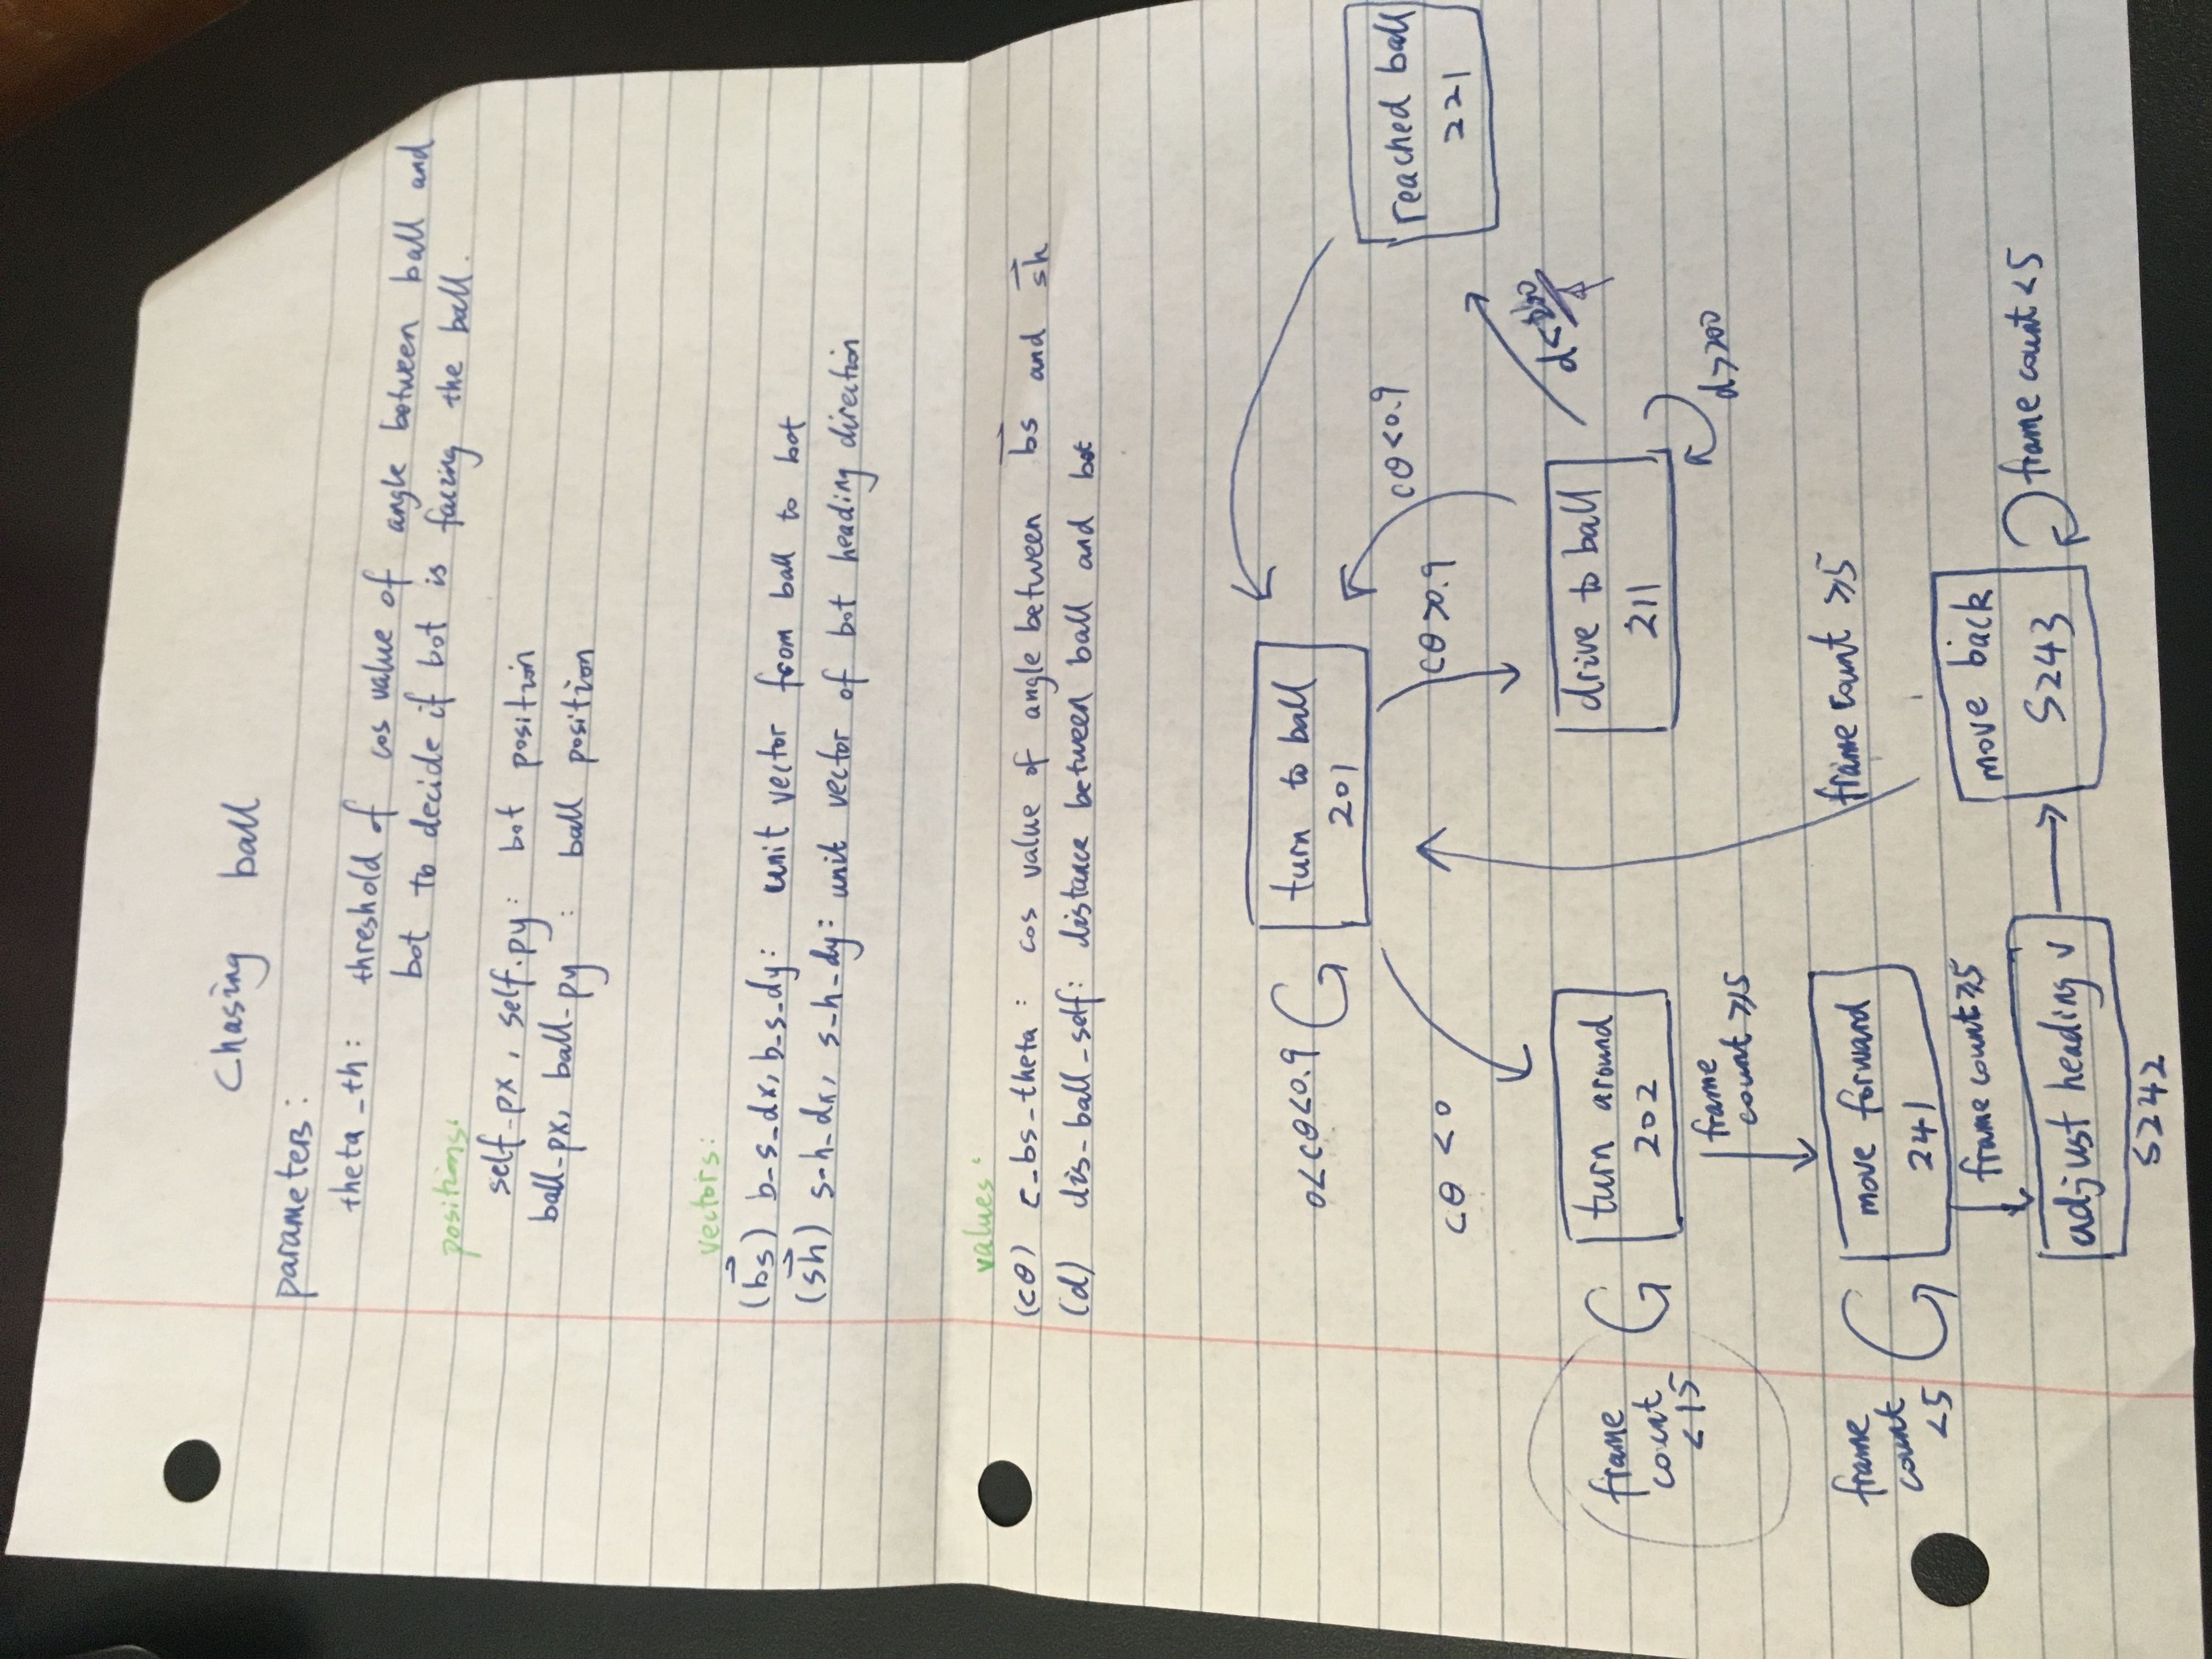 Chasing ball
parameters:
theta_th: threshold of cos value of angle between ball and
bot to decide if bot is facing the ball.
positions:
self_px, self.py: bot position
ball_px, ball_py: ball position
vectors:
(bs) b_s_dx, b_s_dy: unit vector from ball to bot
(sh) s_h_dx, s_h_dy: unit vector of bot heading direction
values:
(cθ) c_bs_theta: cos value of angle between bs and sh
(d) dis_ball_self: distance between ball and bot
0<cθ<0.9
turn to ball
201
cθ<0
cθ>0.9
cθ<0.9
reached ball
221
frame
count
<15
turn around
202
drive to ball
211
d<
d>200
frame
count ≥15
frame
count
<5
move forward
241
frame count ≥5
frame count ≥5
adjust heading v
S242
move back
S243
frame count <5